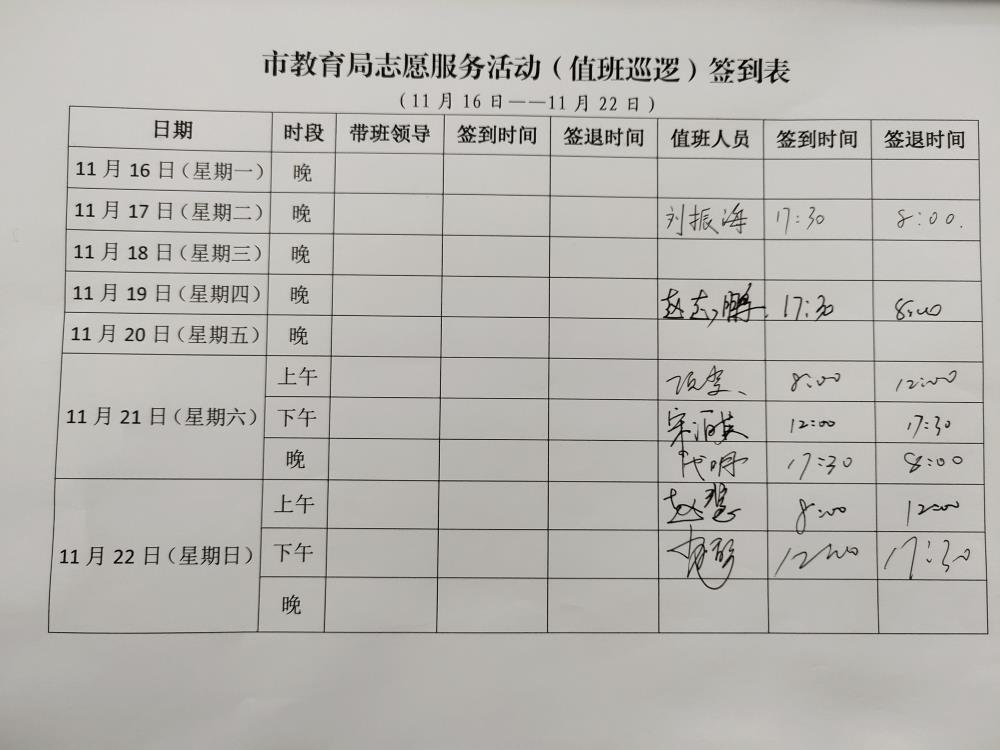 市教育局志愿服务活动（值班巡逻）签到表
（11月16日——11月22日）
日期 时段 带班领导 签到时间 签退时间 值班人员 签到时间 签退时间
11月16日（星期一） 晚
11月17日（星期二） 晚 刘振海 17:30 8:00.
11月18日（星期三） 晚
11月19日（星期四） 晚 赵志鹏 17:30 8:00
11月20日（星期五） 晚
11月21日（星期六） 上午 8:00 12:00
下午 12:00 17:30
晚 代明 17:30 8:00
11月22日（星期日） 上午 赵慧 8:00 12:00
下午 12:00 17:30
晚